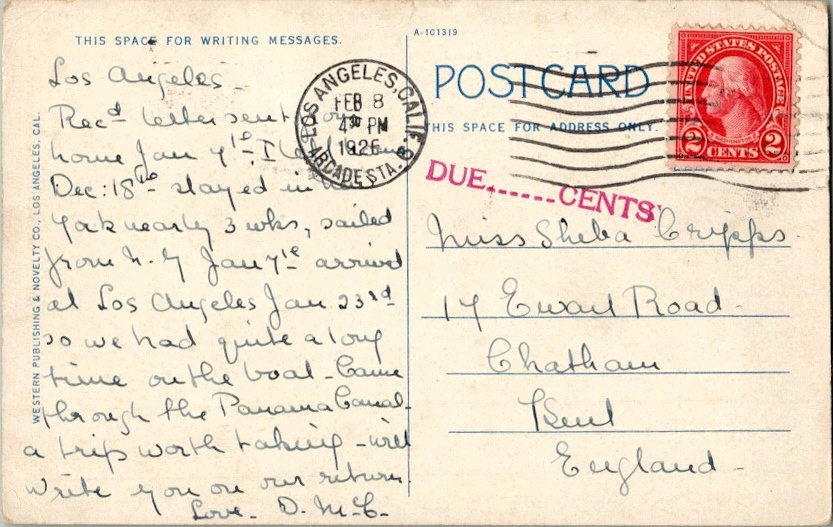 THIS SPACE FOR WRITING MESSAGES.
Los Angeles
Recd letter sent
home Jan 7th I
Dec: 18th stayed in
York nearly 3 wks, sailed
from N. Y Jan 7th arrived
at Los Angeles Jan 23rd
so we had quite a long
time on the boat - Came
through the Panama Canal -
a trip worth taking - will
write you on our return.
Love - D. M. C -
WESTERN PUBLISHING & NOVELTY CO., LOS ANGELES, CAL.
A-101319
POST CARD
THIS SPACE FOR ADDRESS ONLY.
LOS ANGELES, CALIF.
FEB 8
4 PM
1926
ARCADE STA.
UNITED STATES POSTAGE
WASHINGTON
2 CENTS 2
DUE......CENTS
Miss Sheba Cripps.
17 Ewart Road -
Chatham
Kent
England -